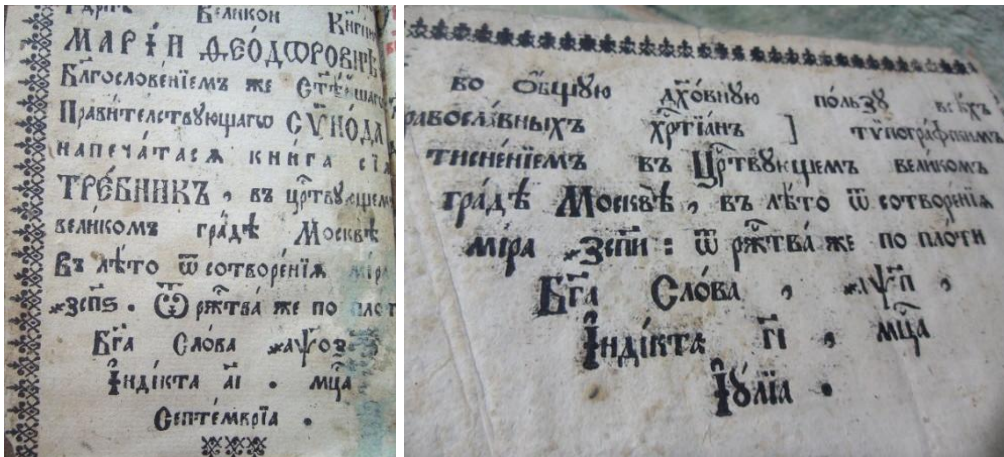 Великой
МАРІ́И ѲЕО́ДѠРОВНѢ
Бл҃гослове́нїемъ же Ст҃ѣ́йшагѡ
Прави́телствующагѡ СѴНО́ДА
напеча́тасѧ кни́га сїѧ̀
ТРЕ́БНИКЪ, въ цр҃твующемъ
вели́комъ гра́дѣ Москвѣ̀
Въ лѣ́то ѿ сотворе́нїѧ мі́ра
҂зс҃пѕ. Ѿ рж҃тва́ же по плот
Бг҃а Сло́ва ҂аѱо
І҆нді́кта а҃і . мц҃а
Септе́мврїа .
во о҆́бщую дх҃о́вную по́льзу всѣ́хъ
равосла́вныхъ хр҃тїа́нъ ] тѷпогра́фскимъ
тисне́нїемъ въ Цр҃твующемъ вели́комъ
гра́дѣ Москвѣ̀, въ лѣ́то ѿ сотворе́нїѧ
мі́ра ҂зс҃пи : ѿ рж҃тва́ же по плоти
Бг҃а Сло́ва , ҂аѱ҃п ,
І҆нді́кта г҃і , мц҃а
І҆ꙋ́лїа .